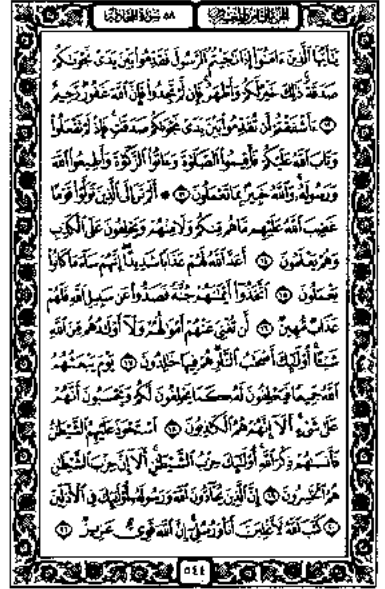 الجزء الثامن والعشرون
٥٨ سورة المجادلة
يَٰٓأَيُّهَا ٱلَّذِينَ ءَامَنُوٓا۟ إِذَا نَٰجَيْتُمُ ٱلرَّسُولَ فَقَدِّمُوا۟ بَيْنَ يَدَىْ نَجْوَىٰكُمْ
صَدَقَةً ذَٰلِكَ خَيْرٌ لَّكُمْ وَأَطْهَرُ فَإِن لَّمْ تَجِدُوا۟ فَإِنَّ ٱللَّهَ غَفُورٌ رَّحِيمٌ
١٢ ءَأَشْفَقْتُمْ أَن تُقَدِّمُوا۟ بَيْنَ يَدَىْ نَجْوَىٰكُمْ صَدَقَٰتٍ فَإِذْ لَمْ تَفْعَلُوا۟
وَتَابَ ٱللَّهُ عَلَيْكُمْ فَأَقِيمُوا۟ ٱلصَّلَوٰةَ وَءَاتُوا۟ ٱلزَّكَوٰةَ وَأَطِيعُوا۟ ٱللَّهَ
وَرَسُولَهُۥ وَٱللَّهُ خَبِيرٌۢ بِمَا تَعْمَلُونَ ١٣ ۞ أَلَمْ تَرَ إِلَى ٱلَّذِينَ تَوَلَّوْا۟ قَوْمًا
غَضِبَ ٱللَّهُ عَلَيْهِم مَّا هُم مِّنكُمْ وَلَا مِنْهُمْ وَيَحْلِفُونَ عَلَى ٱلْكَذِبِ
وَهُمْ يَعْلَمُونَ ١٤ أَعَدَّ ٱللَّهُ لَهُمْ عَذَابًا شَدِيدًا إِنَّهُمْ سَآءَ مَا كَانُوا۟
يَعْمَلُونَ ١٥ ٱتَّخَذُوٓا۟ أَيْمَٰنَهُمْ جُنَّةً فَصَدُّوا۟ عَن سَبِيلِ ٱللَّهِ فَلَهُمْ
عَذَابٌ مُّهِينٌ ١٦ لَّن تُغْنِىَ عَنْهُمْ أَمْوَٰلُهُمْ وَلَآ أَوْلَٰدُهُم مِّنَ ٱللَّهِ
شَيْـًٔا أُو۟لَٰٓئِكَ أَصْحَٰبُ ٱلنَّارِ هُمْ فِيهَا خَٰلِدُونَ ١٧ يَوْمَ يَبْعَثُهُمُ
ٱللَّهُ جَمِيعًا فَيَحْلِفُونَ لَهُۥ كَمَا يَحْلِفُونَ لَكُمْ وَيَحْسَبُونَ أَنَّهُمْ
عَلَىٰ شَىْءٍ أَلَآ إِنَّهُمْ هُمُ ٱلْكَٰذِبُونَ ١٨ ٱسْتَحْوَذَ عَلَيْهِمُ ٱلشَّيْطَٰنُ
فَأَنسَىٰهُمْ ذِكْرَ ٱللَّهِ أُو۟لَٰٓئِكَ حِزْبُ ٱلشَّيْطَٰنِ أَلَآ إِنَّ حِزْبَ ٱلشَّيْطَٰنِ
هُمُ ٱلْخَٰسِرُونَ ١٩ إِنَّ ٱلَّذِينَ يُحَآدُّونَ ٱللَّهَ وَرَسُولَهُۥٓ أُو۟لَٰٓئِكَ فِى ٱلْأَذَلِّينَ
٢٠ كَتَبَ ٱللَّهُ لَأَغْلِبَنَّ أَنَا۠ وَرُسُلِىٓ إِنَّ ٱللَّهَ قَوِىٌّ عَزِيزٌ ٢١
٥٤٤